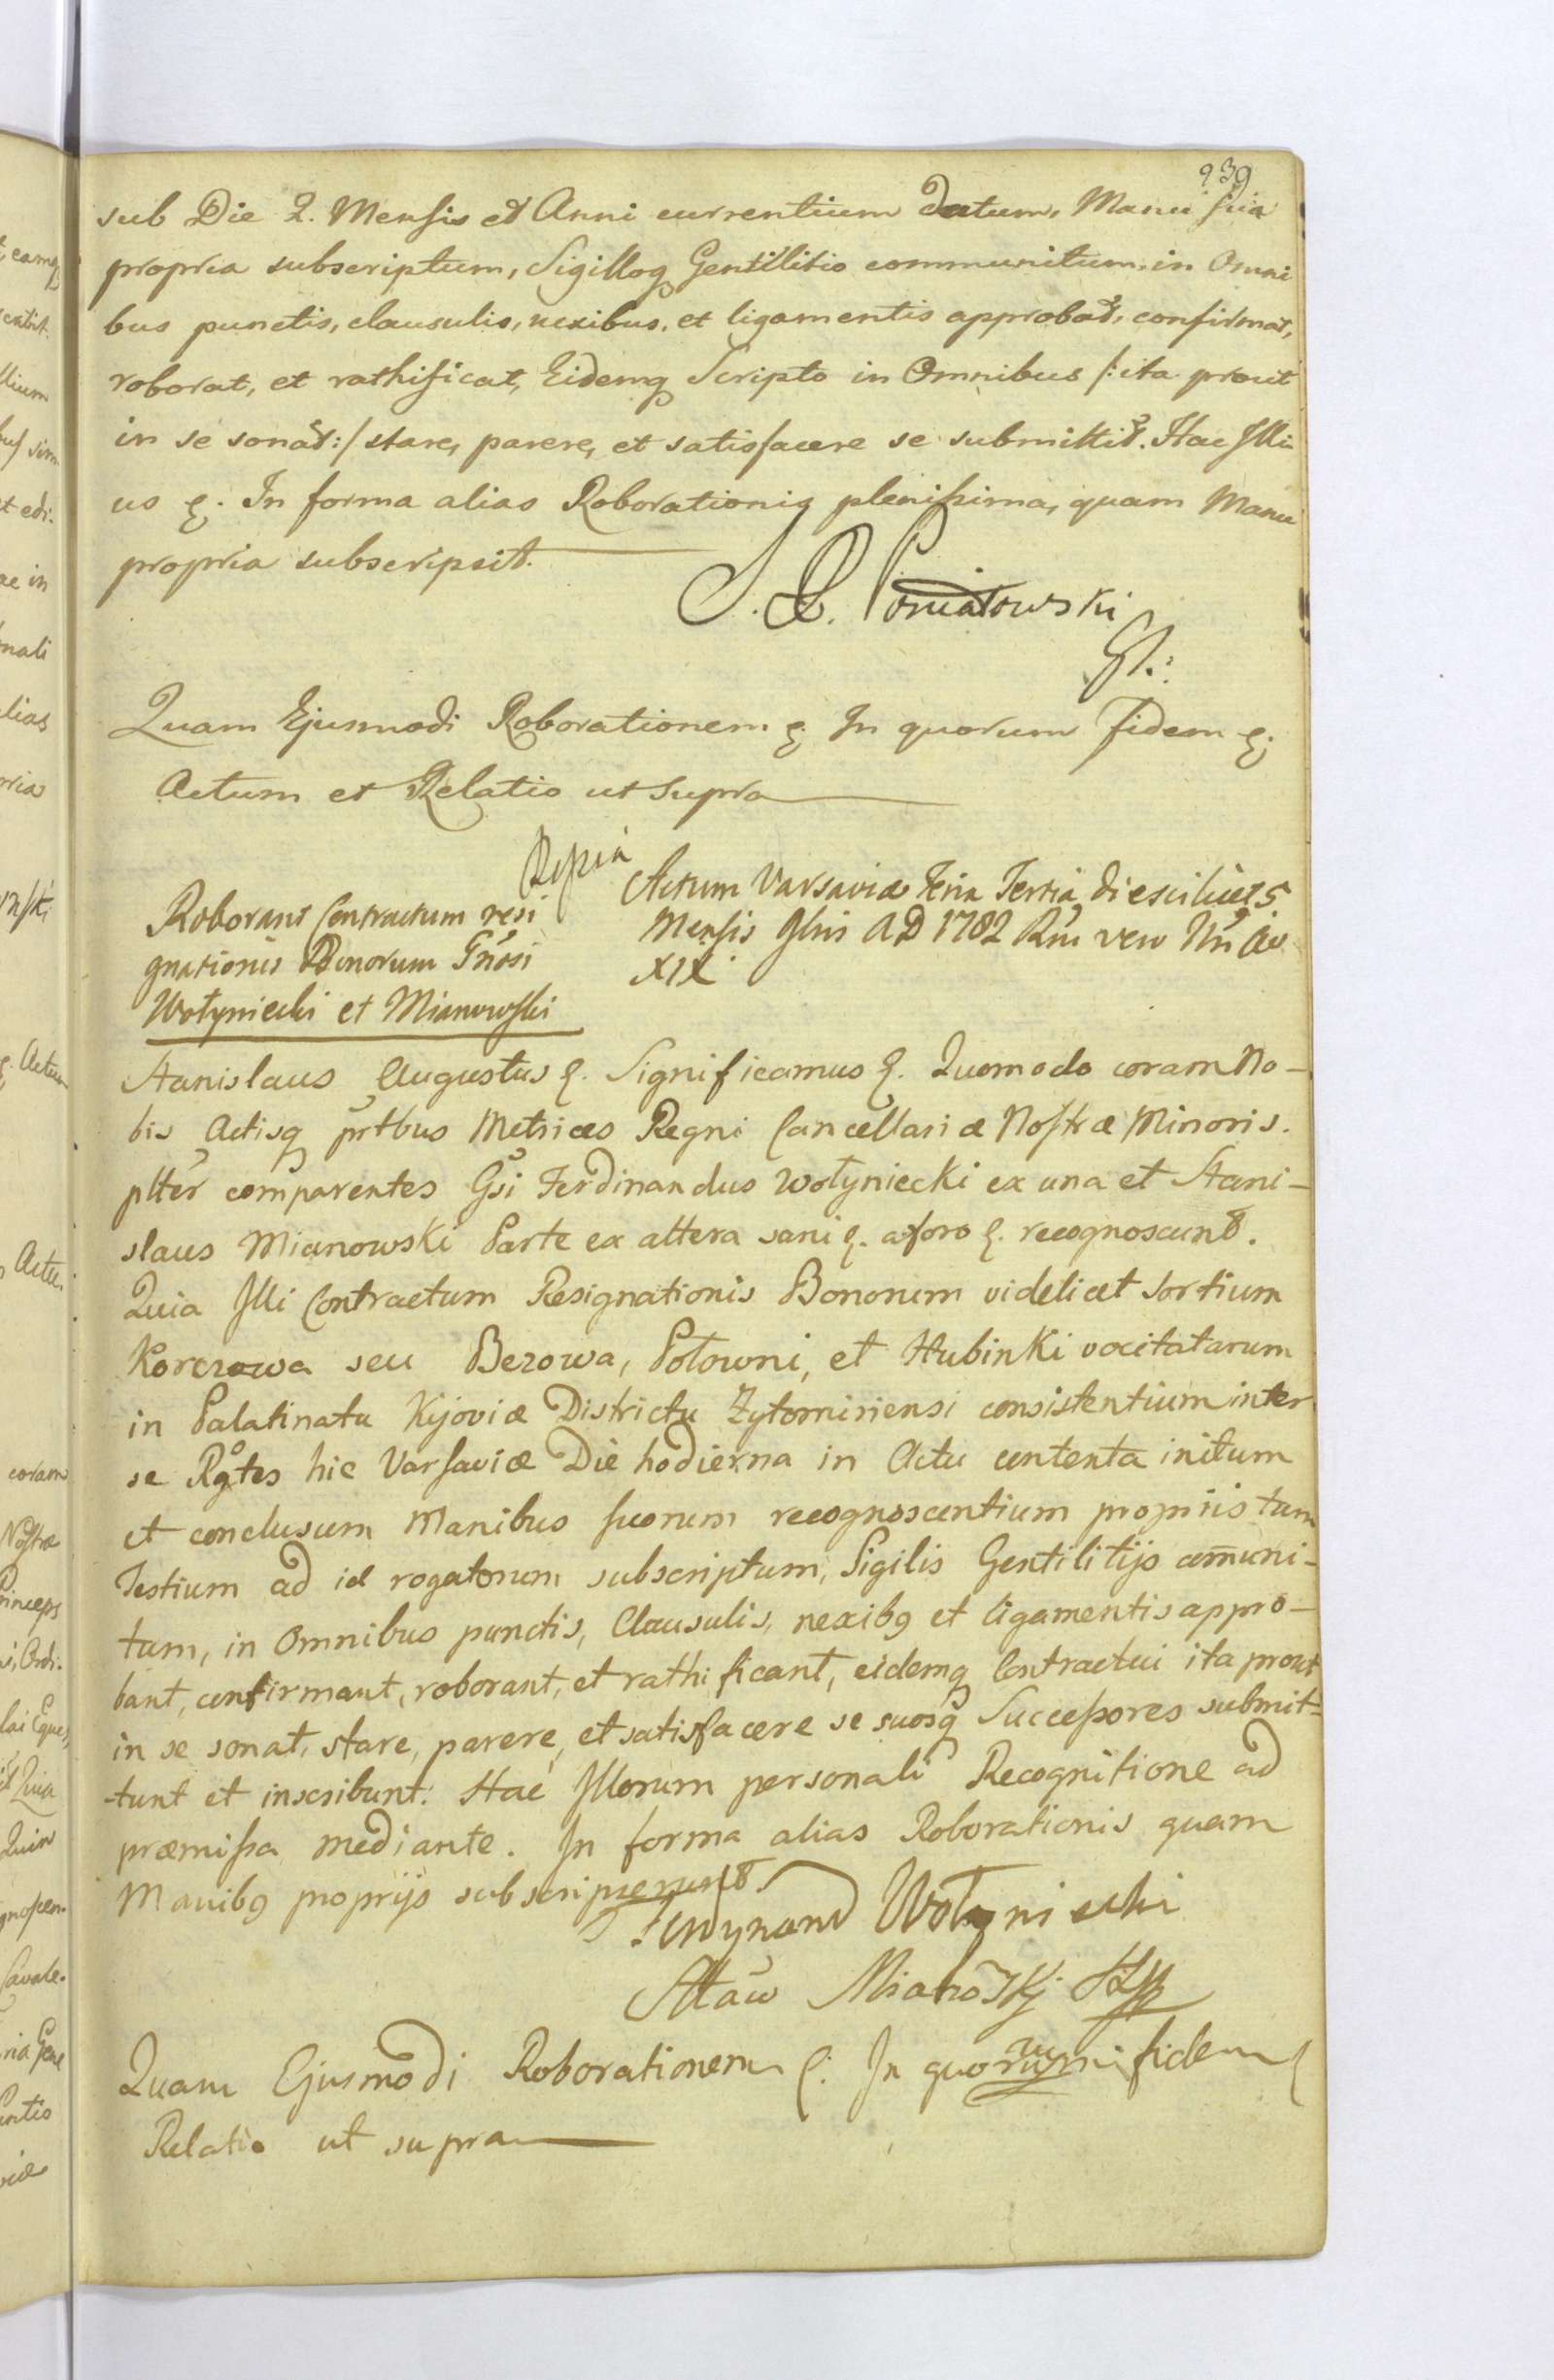 239
sub Die 2. Mensis et Anni currentium datum, Manu sua
propria subscriptum, Sigilloq Gentilitio communitum, in Omni
bus punctis, clausulis, nexibus, et ligamentis approbat, confirmat,
roborat, et rathificat, Eidemq Scripto in Omnibus /: ita prout
in se sonat :/ stare, parere, et satisfacere se submittit. Hac Illi
us &. In forma alias Roborationis plenissima, quam Manu
propria subscripsit.
Poniatowski
Quam Ejusmodi Roborationem &. In quorum Fidem &.
Actum et Relatio ut Supra
Roborant Contractum resi
gnationis Bonorum Gnosi
Wołyniecki et Mianowski
Actum Varsaviæ Feria Tertia die scilicet 5
Mensis 9bris AD 1782 Rni vero Nri Ao
XIX.
Stanislaus Augustus &. Significamus &. Quomodo coram No-
bis Actisq prtbus Metrices Regni Cancellariæ Nostræ Minoris.
plter comparentes Gsi Ferdinandus Wołyniecki ex una et Stani-
slaus Mianowski Parte ex altera sani &. a foro &. recognoscunt.
Quia Illi Contractum Resignationis Bonorum videlicet Sortium
Korczowa seu Bezowa, Połowni, et Hubinki vocitatarum
in Palatinatu Kijoviæ Districtu Zytomiriensi consistentium inter
se Rgtes hic Varsaviæ Die hodierna in Actu contenta initum
et conclusum Manibus suorum recognoscentium propriis tum
Testium ad id rogatorum subscriptum, Sigilis Gentilitijs comuni-
tum, in Omnibus punctis, Clausulis, nexibq et ligamentis appro-
bant, confirmant, roborant, et rathificant, eidemq Contractui ita prout
in se sonat, stare, parere, et satisfacere se suosq Successores submit-
-tunt et inscribunt. Hac Illorum personali Recognitione ad
præmissa mediante. In forma alias Roborationis quam
Manibq proprijs subscripserunt.
Ferdynand Wołyniecki
Sttaw Mianoski
Quam Ejusmodi Roborationem &. In quorum fidem &
Relatio ut supra